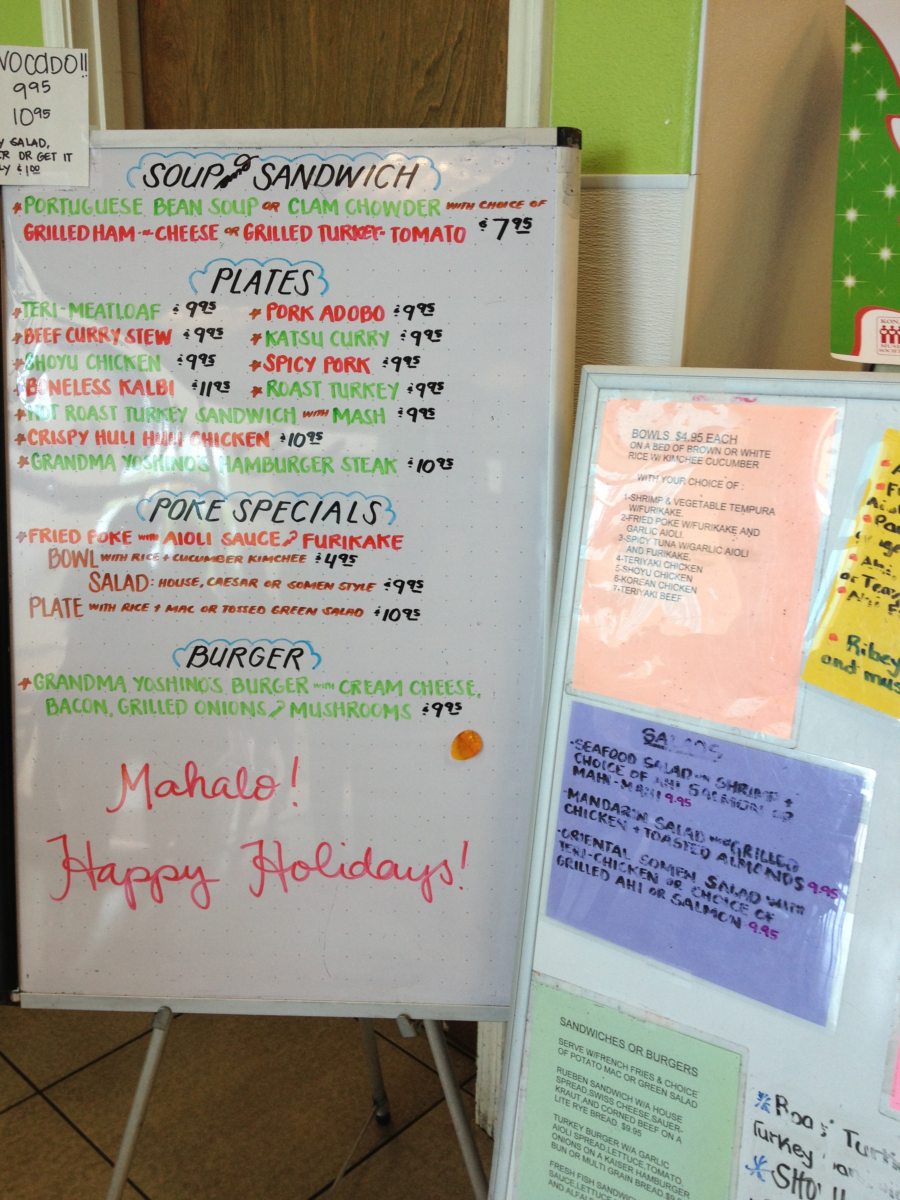 VOCADO!!
9.95
10.95
SALAD,
OR GET IT
$1.00
SOUP and SANDWICH
*PORTUGUESE BEAN SOUP OR CLAM CHOWDER WITH CHOICE OF
GRILLED HAM & CHEESE OR GRILLED TURKEY-TOMATO $7.95
PLATES
*TERI-MEATLOAF $9.95 *PORK ADOBO $9.95
*BEEF CURRY STEW $9.95 *KATSU CURRY $9.95
*SHOYU CHICKEN $9.95 *SPICY PORK $9.95
*BONELESS KALBI $11.95 *ROAST TURKEY $9.95
*HOT ROAST TURKEY SANDWICH WITH MASH $9.95
*CRISPY HULI HULI CHICKEN $10.95
*GRANDMA YOSHINO'S HAMBURGER STEAK $10.95
POKE SPECIALS
*FRIED POKE WITH AIOLI SAUCE & FURIKAKE
BOWL WITH RICE + CUCUMBER KIMCHEE $4.95
SALAD: HOUSE, CAESAR OR SOMEN STYLE $9.95
PLATE WITH RICE + MAC OR TOSSED GREEN SALAD $10.95
BURGER
*GRANDMA YOSHINO'S BURGER WITH CREAM CHEESE,
BACON, GRILLED ONIONS & MUSHROOMS $9.95
Mahalo!
Happy Holidays!
BOWLS $4.95 EACH
ON A BED OF BROWN OR WHITE
RICE W/ KIMCHEE CUCUMBER
WITH YOUR CHOICE OF :
1-SHRIMP & VEGETABLE TEMPURA
W/FURIKAKE.
2-FRIED POKE W/FURIKAKE AND
GARLIC AIOLI.
3-SPICY TUNA W/GARLIC AIOLI
AND FURIKAKE.
4-TERIYAKI CHICKEN
5-SHOYU CHICKEN
6-KOREAN CHICKEN
7-TERIYAKI BEEF
Ribey
and mus
SALADS
-SEAFOOD SALAD w/ SHRIMP +
CHOICE OF AHI SALMON OR
MAHI-MAHI 9.95
-MANDARIN SALAD WITH GRILLED
CHICKEN + TOASTED ALMONDS 9.95
-ORIENTAL SOMEN SALAD WITH
TERI-CHICKEN OR CHOICE OF
GRILLED AHI OR SALMON 9.95
SANDWICHES OR BURGERS
SERVE W/FRENCH FRIES & CHOICE
OF POTATO MAC OR GREEN SALAD
RUEBEN SANDWICH W/A HOUSE
SPREAD,SWISS CHEESE,SAUER-
KRAUT,AND CORNED BEEF ON A
LITE RYE BREAD. $9.95
TURKEY BURGER W/A GARLIC
AIOLI SPREAD,LETTUCE,TOMATO,
ONIONS ON A KAISER HAMBURGER
BUN OR MULTI GRAIN BREAD
FRESH FISH
SAUCE,LETTUCE
Turkey